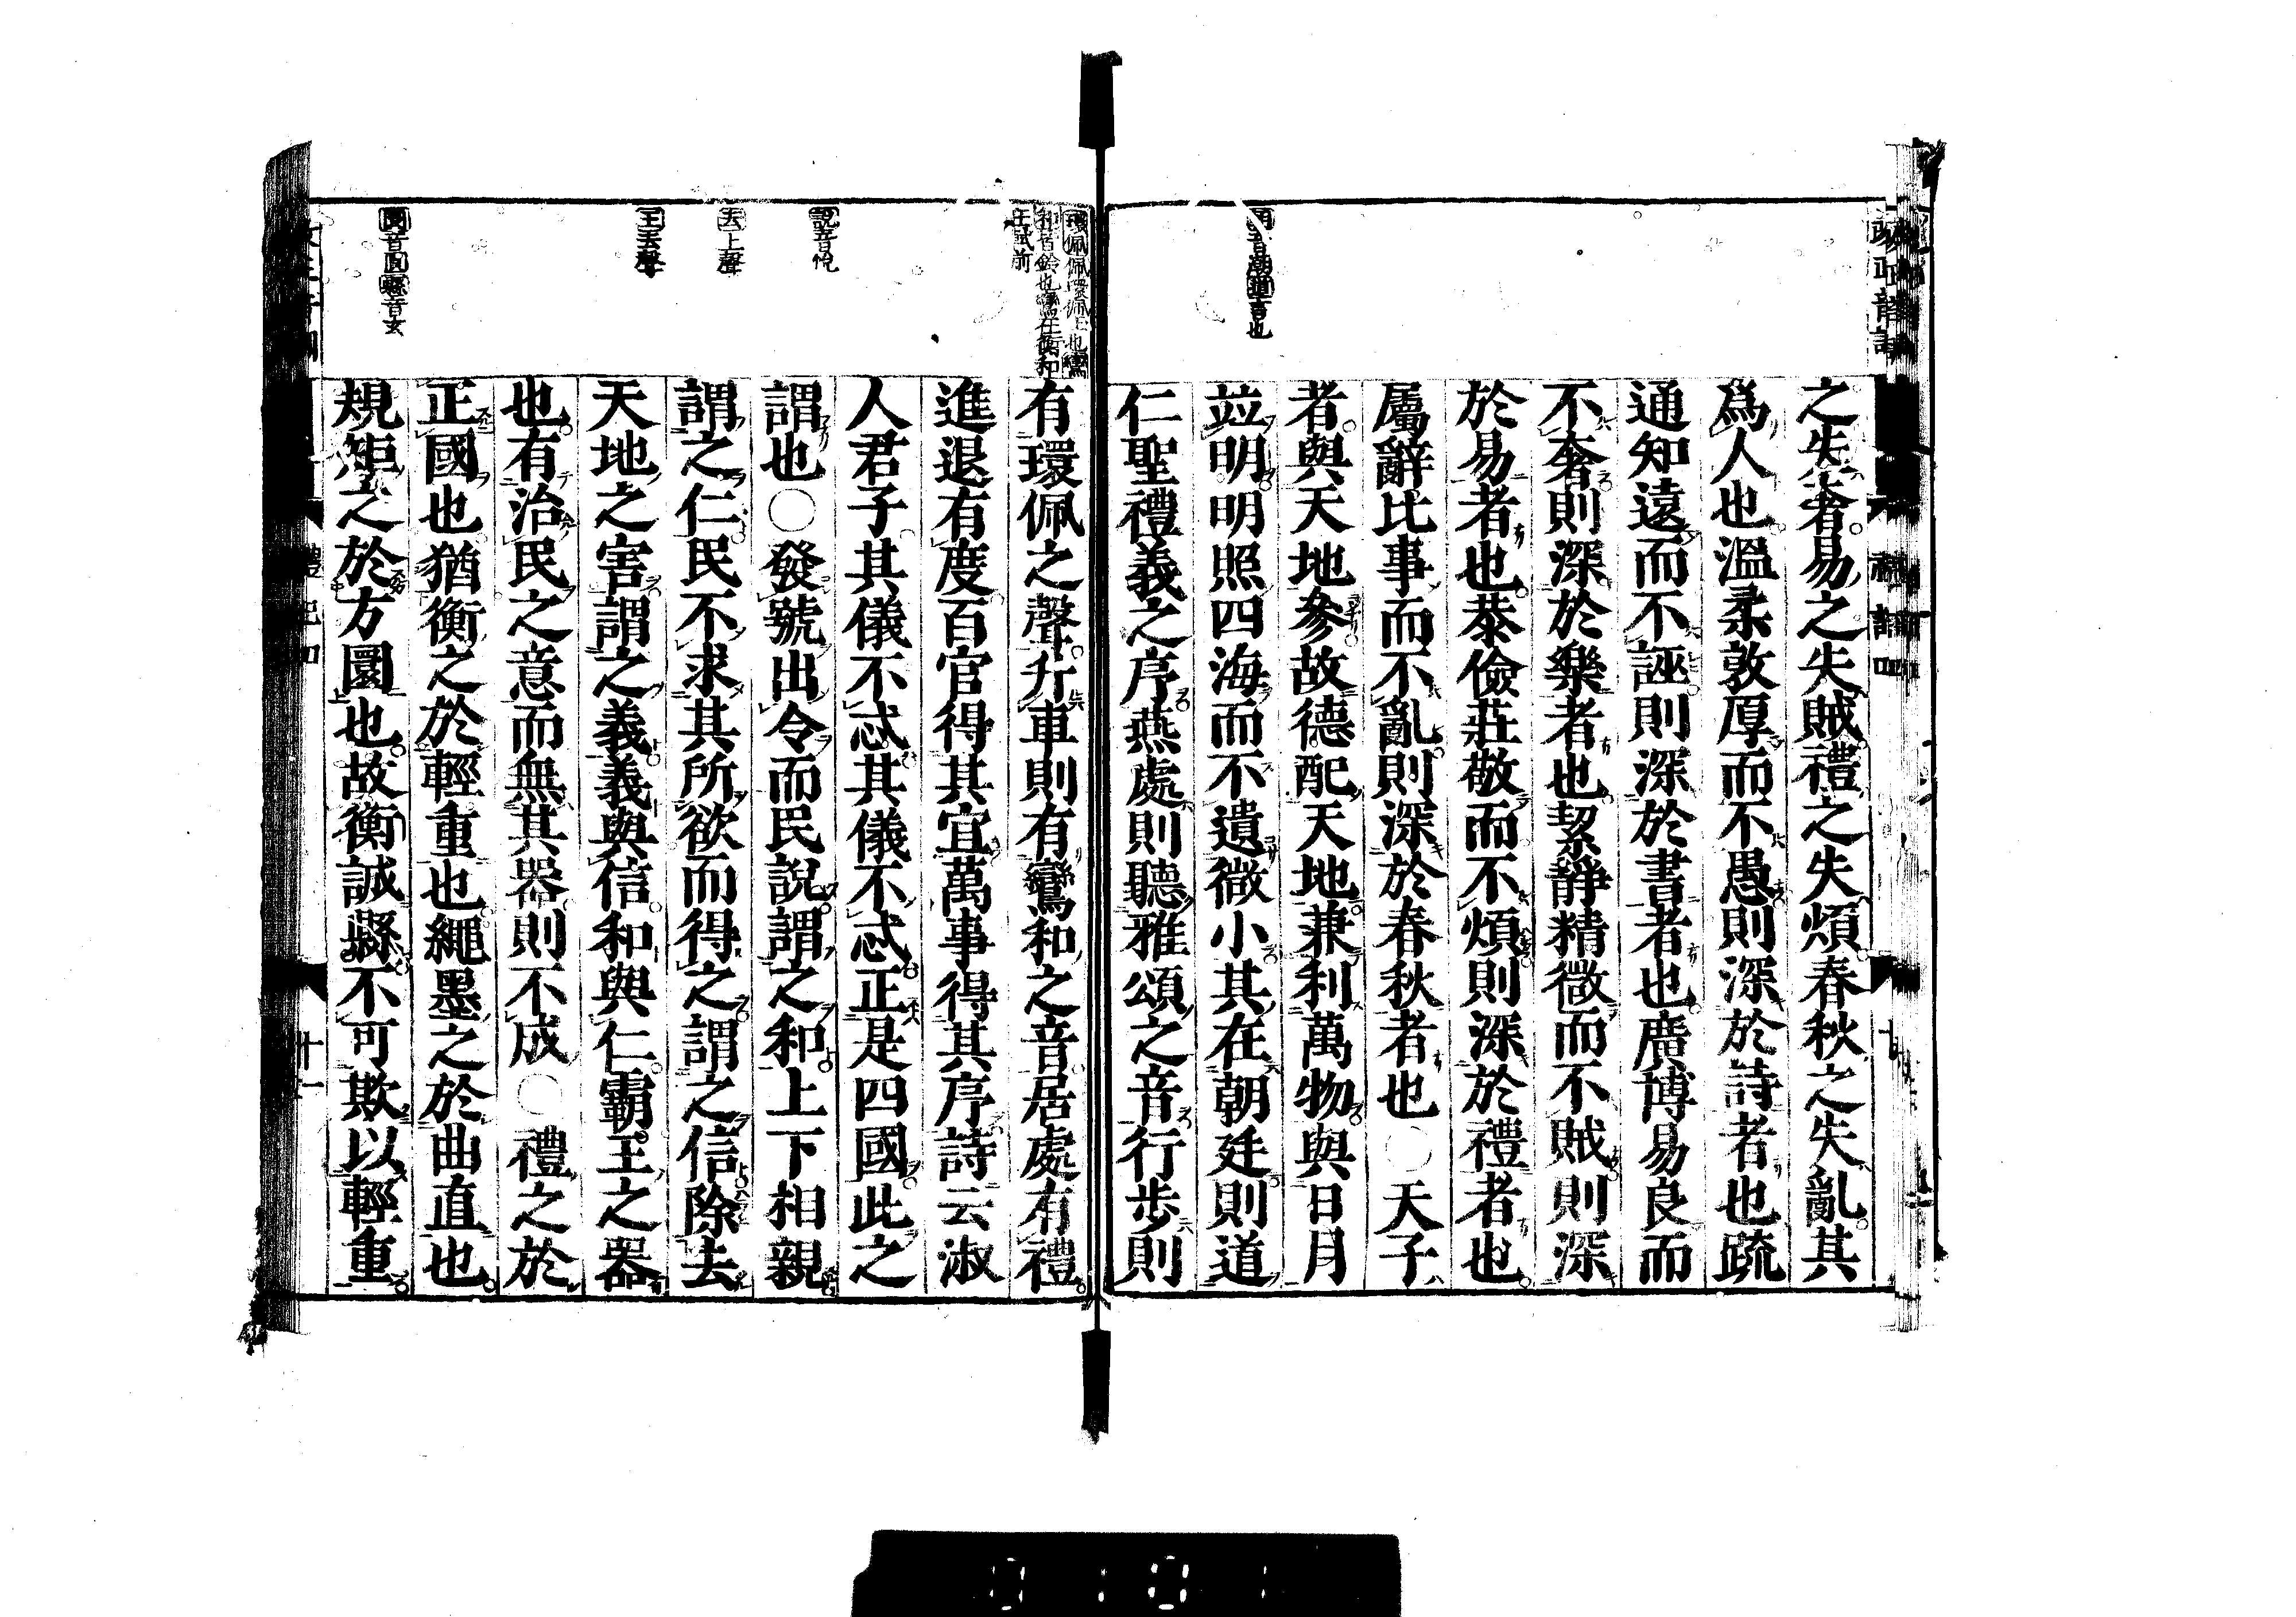 之失奢易之失賊禮之失煩春秋之失亂其
爲人也溫柔敦厚而不愚則深於詩者也疏
通知遠而不誣則深於書者也廣博易良而
不奢則深於樂者也絜靜精微而不賊則深
於易者也恭儉莊敬而不煩則深於禮者也
屬辭比事而不亂則深於春秋者也○天子
者與天地參故德配天地兼利萬物與日月
並明明照四海而不遺微小其在朝廷則道
仁聖禮義之序燕處則聽雅頌之音行步則
有環佩之聲升車則有鸞和之音居處有禮
進退有度百官得其宜萬事得其序詩云淑
人君子其儀不忒其儀不忒正是四國此之
謂也○發號出令而民說謂之和上下相親
謂之仁民不求其所欲而得之謂之信除去
天地之害謂之義義與信和與仁霸王之器
也有治民之意而無其器則不成○禮之於
正國也猶衡之於輕重也繩墨之於曲直也
規矩之於方圜也故衡誠縣不可欺以輕重
說音悅
去上聲
王去聲
圜音圓縣音玄
十一
0101